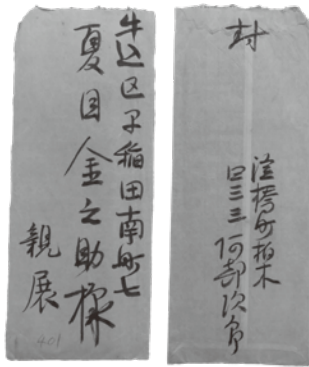 牛込区早稲田南町七
夏目金之助様
親展
401
封
淀橋町柏木
四三三 阿部次郎